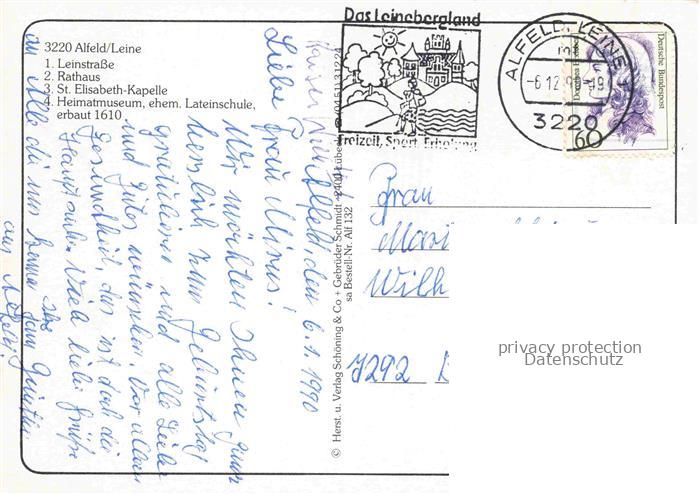 3220 Alfeld/Leine
1. Leinstraße
2. Rathaus
3. St. Elisabeth-Kapelle
4. Heimatmuseum, ehem. Lateinschule,
erbaut 1610
Das Leinebergland
Freizeit, Sport, Erholung
ALFELD, LEINE 1
-6.12.90-19
3220
Deutsche Bundespost
60
© Herst. u. Verlag Schöning & Co + Gebrüder Schmidt · 2400 Lübeck · (0451) 31224
sa Bestell-Nr. Alf 132
Alfeld, den 6.1.1990
Liebe Frau
Wir möchten Ihnen ganz
herzlich zum Geburtstag
gratulieren und alles Liebe
und Gutes wünschen. Vor allem
Gesundheit, das ist doch die
Hauptsache. Viele liebe Grüße
an Alle die uns kennen
Frau
Wilh
privacy protection
Datenschutz